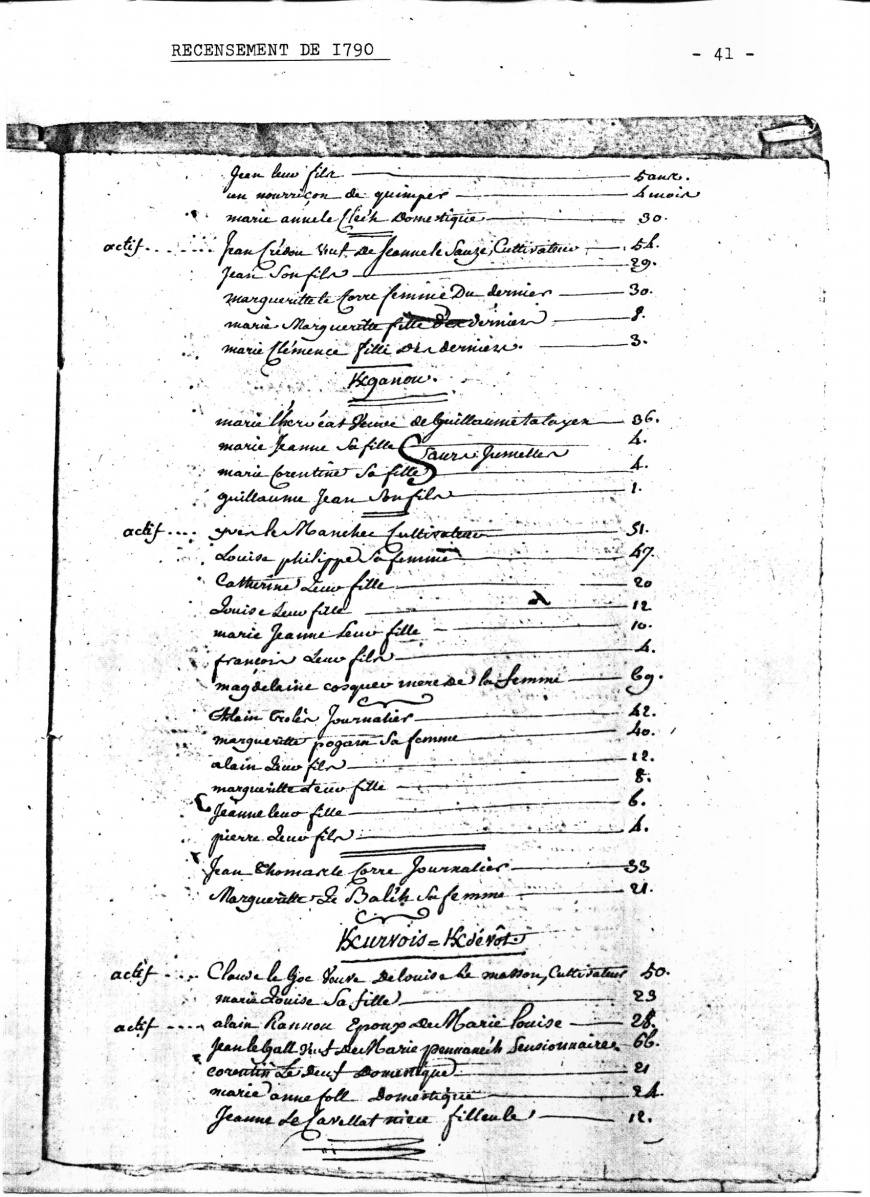 RECENSEMENT DE 1790 - 41 -
Jean leur fils 5 ans.
un nourriçon de quimper 4 mois
marie anne le Clech Domestique 30.
actif Jean Crédou veuf. de Jeanne le Sauze, Cultivateur 54.
Jean Son fils 29.
margueritte le Corre femme Du dernier 30.
marie Margueritte fille des derniers 8.
marie Clémence fille Des derniers. 3.
Kganou.
marie veuve de Guillaume 36.
marie Jeanne Sa fille 4.
Sœurs Jumelles
marie Corentine Sa fille 4.
guillaume Jean Son fils 1.
actif yves le Manchec Cultivateur 51.
Louise philippe Sa femme 47.
Catherine Leur fille 20
Louise Leur fille 12
marie Jeanne Leur fille 10.
francois Leur fils 4.
magdelaine cosquer mere de la femme 69.
Alain Journalier 42.
margueritte pogam Sa femme 40.
alain Leur fils 12.
margueritte Leur fille 8.
Jeanne leur fille 6.
pierre Leur fils 4.
Jean Thomas le Corre Journalier 33
Margueritte Le Balch Sa femme 21.
Kurvois = Kdévôt
actif Claude le Goc Veuve De Louise Le masson, Cultivateur 50.
marie Louise Sa fille 23
actif alain Rannou Epoux de Marie Louise 28.
Jean le gall veuf De Marie pennanech Pensionnaire 66.
corentin Le Deuf Domestique 21
marie anne foll Domestique 24.
Jeanne Le Cavellat niece filleule 12.